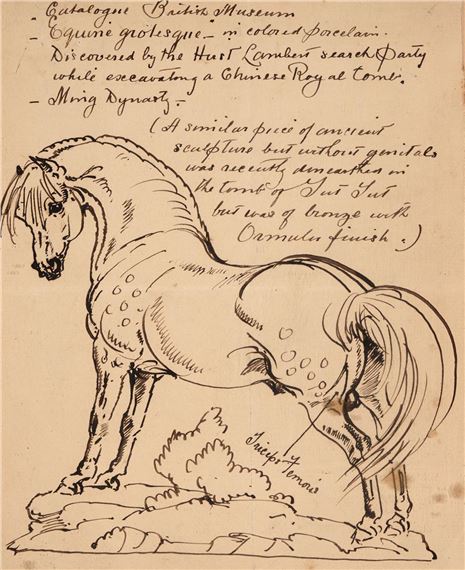 Catalogue British Museum
- Equine grotesque - in colored porcelain.
Discovered by the Hust Lambert search party
while excavating a Chinese Royal tomb.
- Ming Dynasty -
(A similar piece of ancient
sculpture but without genitals
was recently unearthed in
the tomb of Tut Tut
but was of bronze with
Ormulu finish.)
Tricep